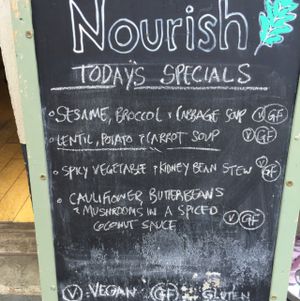 Nourish
TODAY'S SPECIALS
• SESAME, BROCCOL + CABBAGE SOUP V GF
• LENTIL, POTATO + CARROT SOUP V GF
• SPICY VEGETABLE + KIDNEY BEAN STEW V GF
• CAULIFLOWER, BUTTERBEANS
+ MUSHROOMS IN A SPICED
COCONUT SAUCE V GF
V = VEGAN GF = GLUTEN